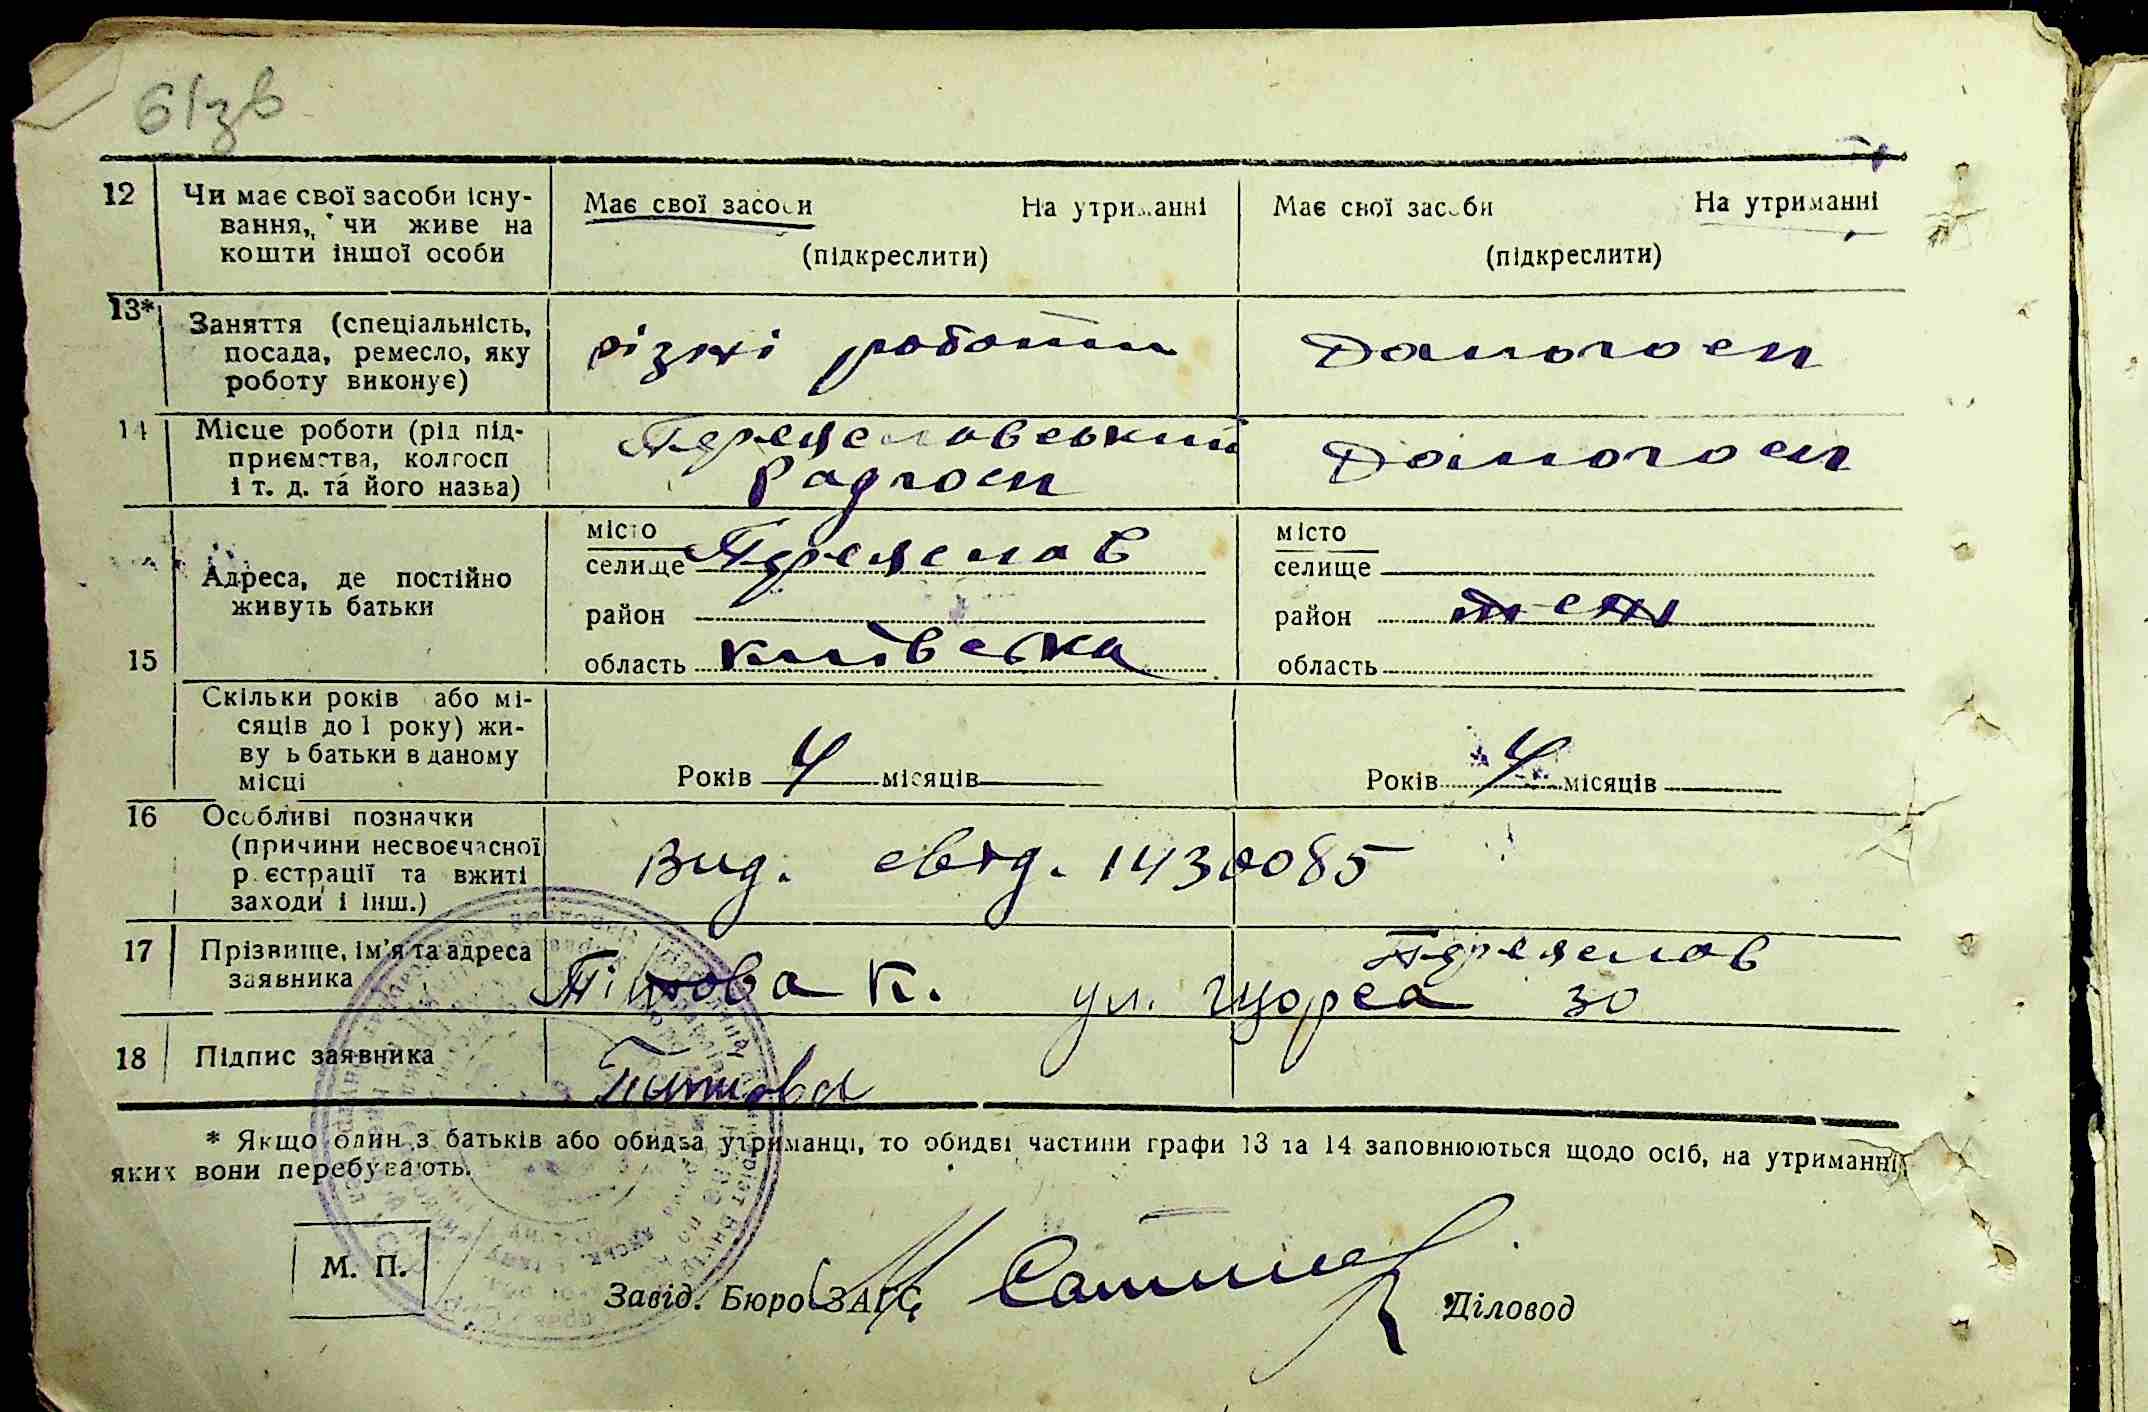 61зв
12 Чи має свої засоби існу- Має свої засоби На утриманні Має свої засоби На утриманні
вання, чи живе на
кошти іншої особи (підкреслити) (підкреслити)
13* Заняття (спеціальність, різні роботи Домогосп
посада, ремесло, яку
роботу виконує)
14 Місце роботи (рід під- Переяславський Домогосп
приємства, колгосп Радгосп
і т. д. та його назва)
15 Адреса, де постійно
живуть батьки
місто місто
селище Переяслав селище
район район теж
область Київська область
Скільки років або мі-
сяців до 1 року) жи-
ву ь батьки в даному
місці Років 4 місяців Років 4 місяців
16 Особливі позначки
(причини несвоєчасної Вид. свід. 1430085
р єстрації та вжиті
заходи і інш.)
17 Прізвище, ім'я та адреса Переяслав
заявника К. ул. Щорса 30
18 Підпис заявника
* Якщо один з батьків або обидва утриманці, то обидві частини графи 13 та 14 заповнюються щодо осіб, на утриманні
яких вони перебувають.
М. П.
Завід. Бюро ЗАГС Діловод